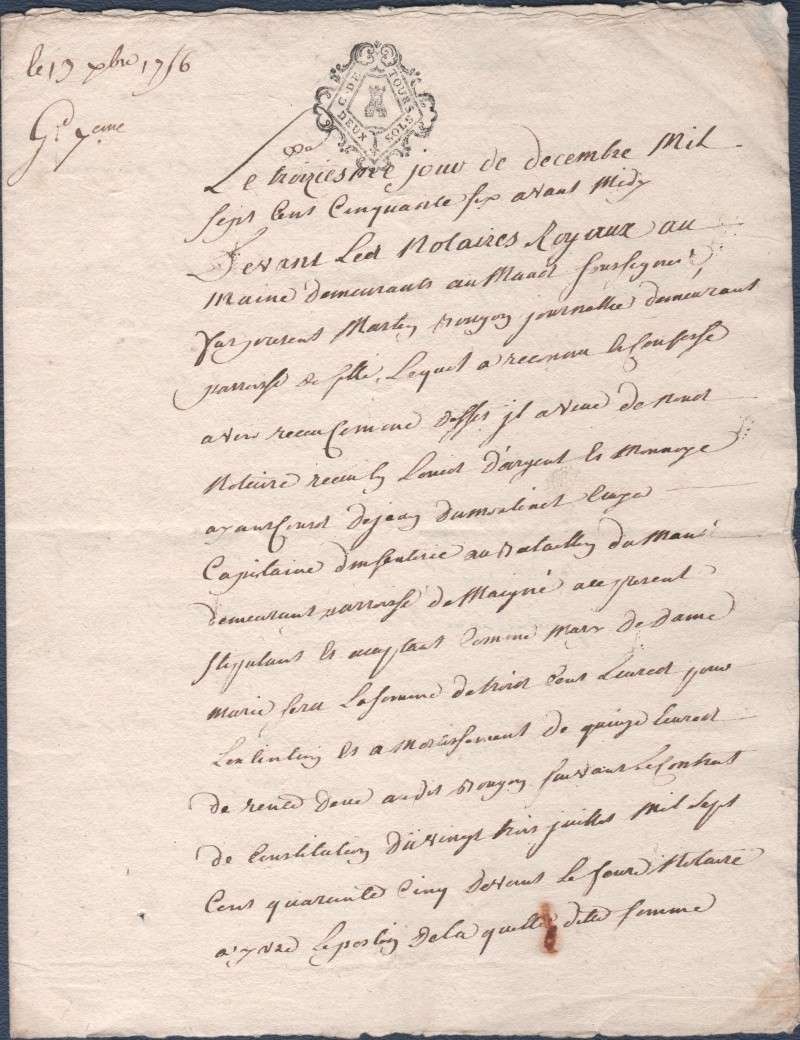 le 13 xbre 1756
G. DE TOURS
DEUX SOLS
Le troiziesme jour de decembre Mil
sept Cent Cinquante six avant Midy
Devant Les Notaires Royaux au
Maine demeurants au Mans soussignés
present Martin journallier demeurant
parroisse de Lequel a reconnu et Confessé
avoir receu Comme il a veue de Nous
Notaire en Louis d'argent et Monnoye
ayant Cours de jean Dumoulinet
Capitaine d'infanterie au Bataillon du Mans
demeurant parroisse de Maigné a ce present
stipulant et acceptant Comme Mary de Dame
Marie La somme de trois Cent Livres pour
L'extinction et amortissement de quinze Livres
de rente Deue audit suivant Le Contrat
de Constitution du vingt trois juillet Mil sept
Cent quarente Cinq Devant Notaire
a yvré De la quelle dite somme